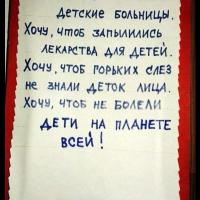 Детские больницы.
Хочу, чтоб запылились
лекарства для детей.
Хочу, чтоб горьких слез
не знали деток лица.
Хочу, чтоб не болели
дети на планете
всей!